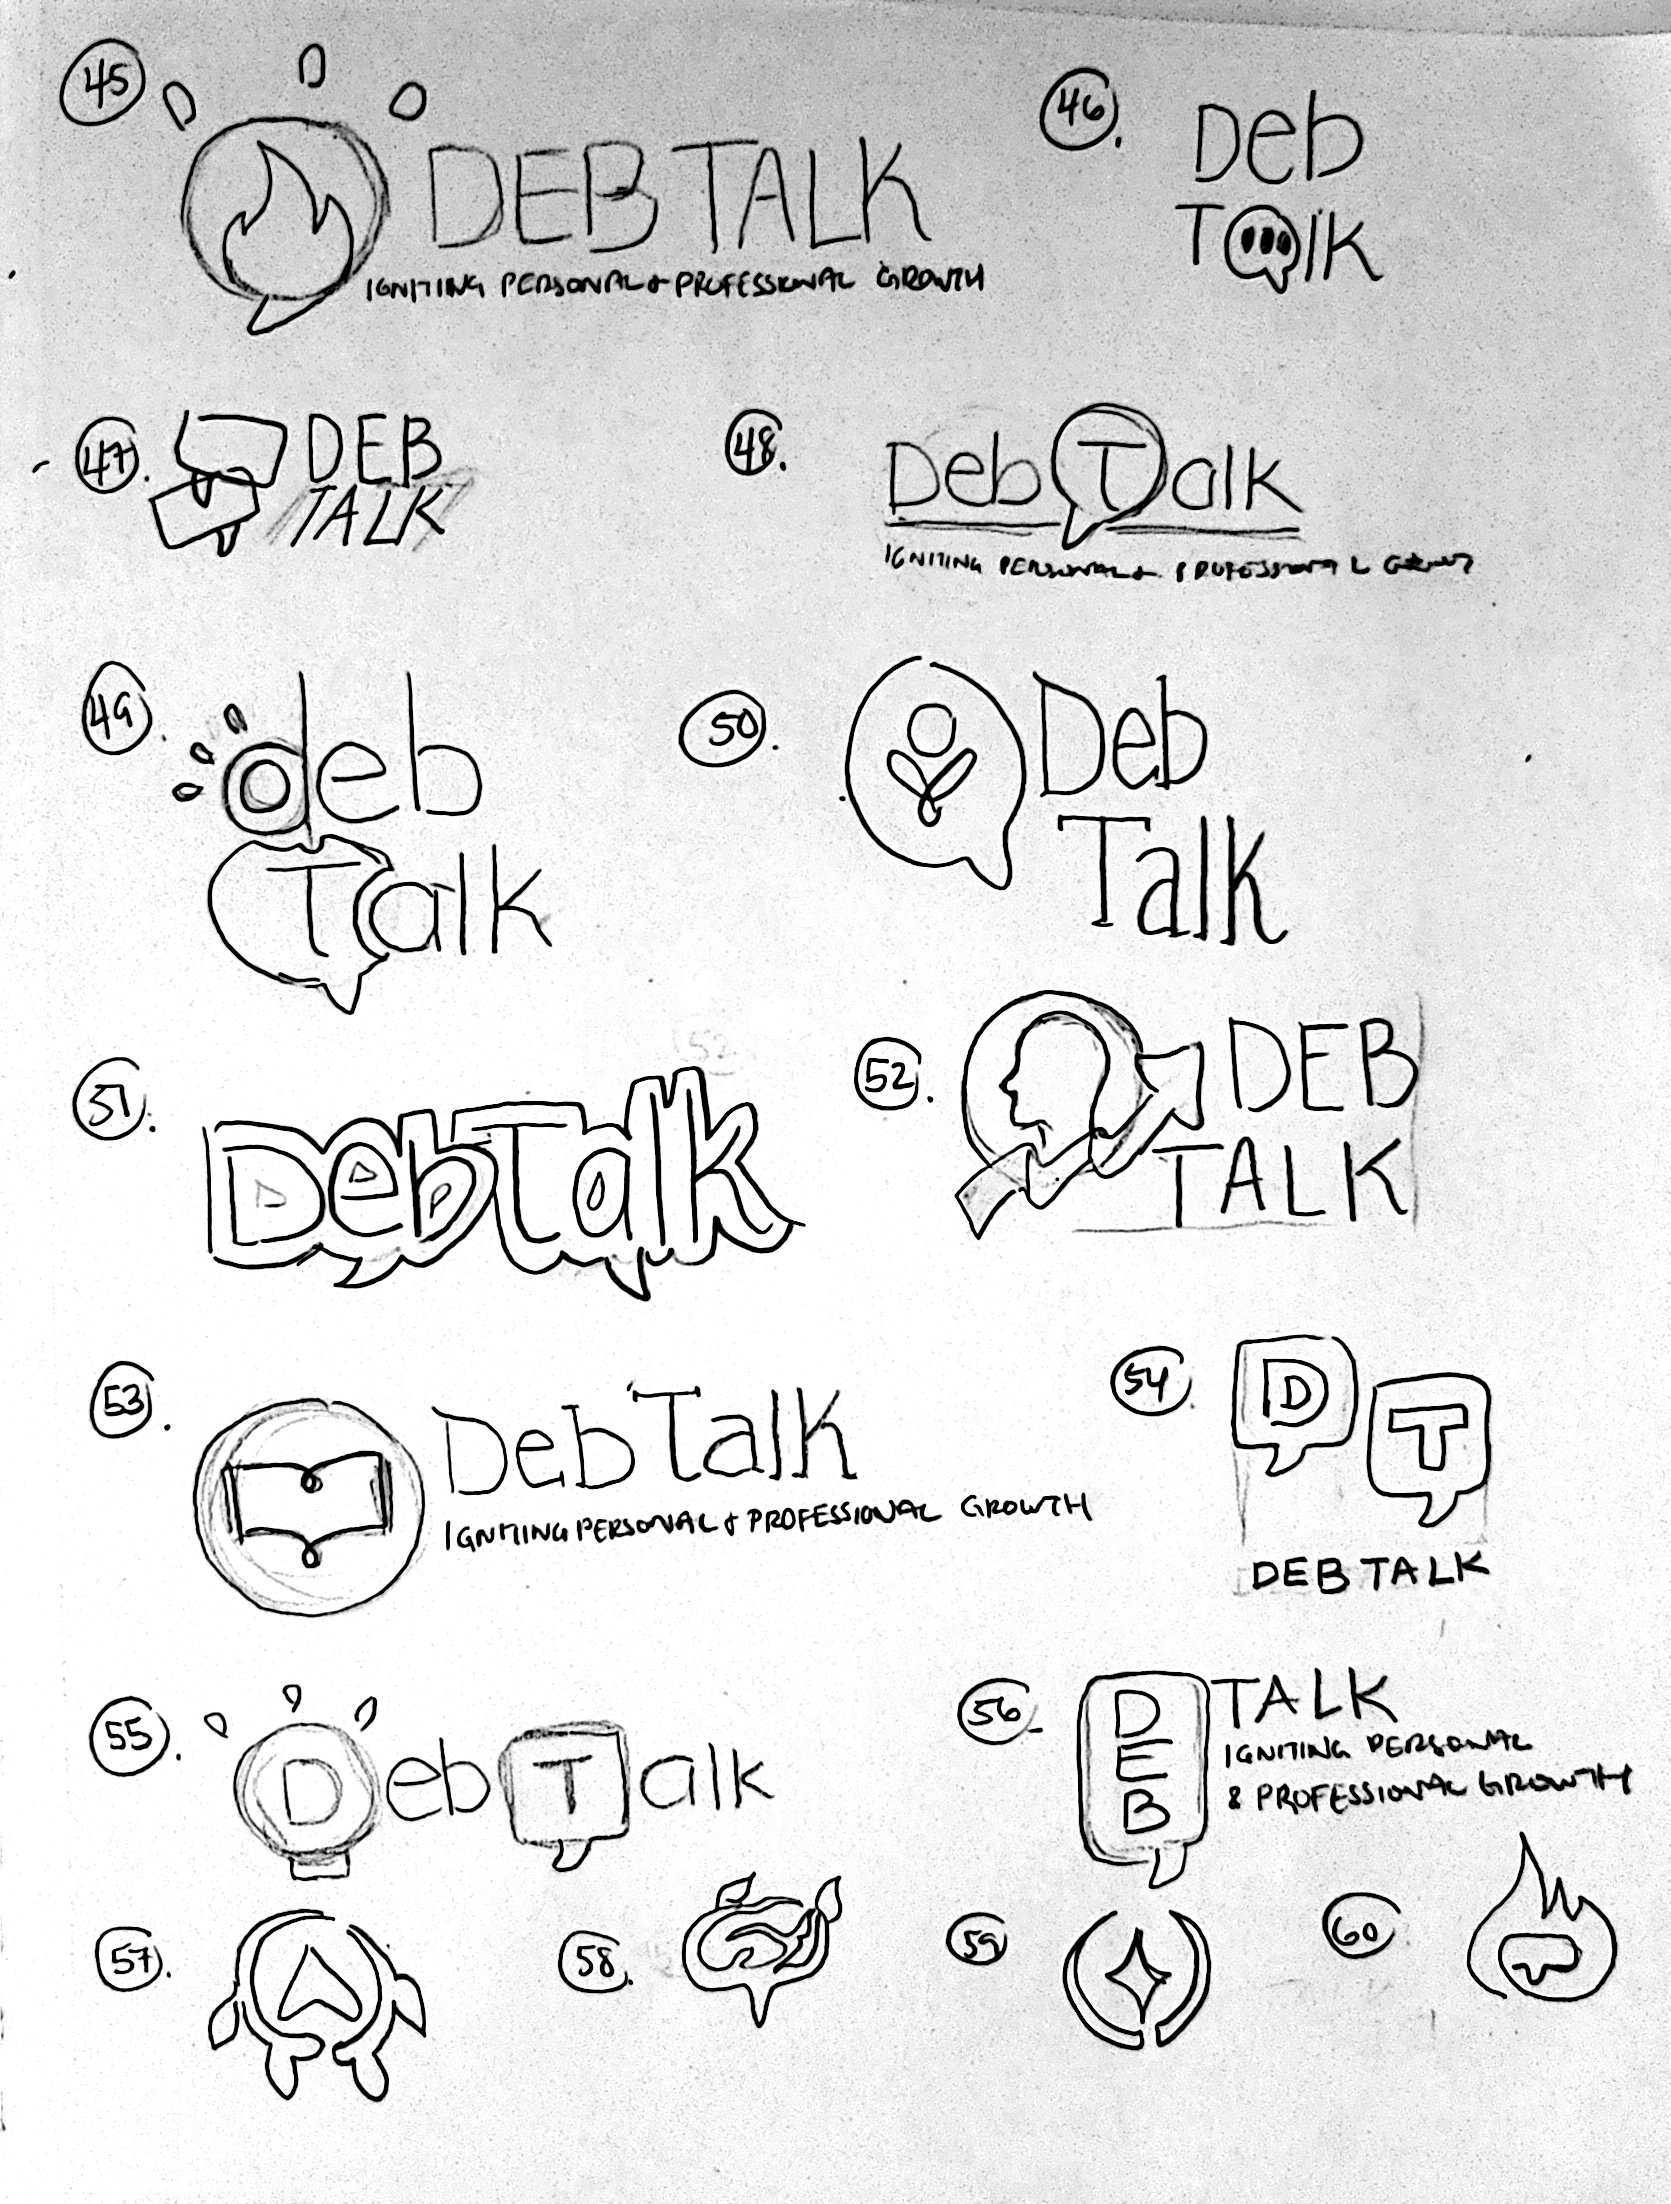 45
DEB TALK
IGNITING PERSONAL & PROFESSIONAL GROWTH
46.
Deb
Talk
47.
DEB
TALK
48.
Deb Talk
IGNITING PERSONAL & PROFESSIONAL
49.
deb
Talk
50.
Deb
Talk
51.
DebTalk
52.
DEB
TALK
53.
Deb Talk
IGNITING PERSONAL & PROFESSIONAL GROWTH
54.
D T
DEB TALK
55.
Deb Talk
56.
DEB
TALK
IGNITING PERSONAL
& PROFESSIONAL GROWTH
57.
58.
59
60